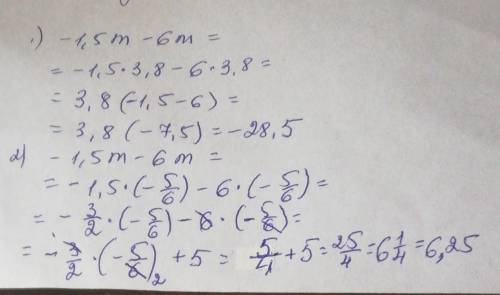 1) -1,5m - 6m =
= -1,5·3,8 - 6·3,8 =
= 3,8(-1,5-6) =
= 3,8(-7,5) = -28,5
2) -1,5m - 6m =
= -1,5·(-5/6) - 6·(-5/6) =
= -3/2·(-5/6) - 6·(-5/6) =
= -3/2·(-5/6)₂ + 5 = 5/4 + 5 = 25/4 = 6 1/4 = 6,25